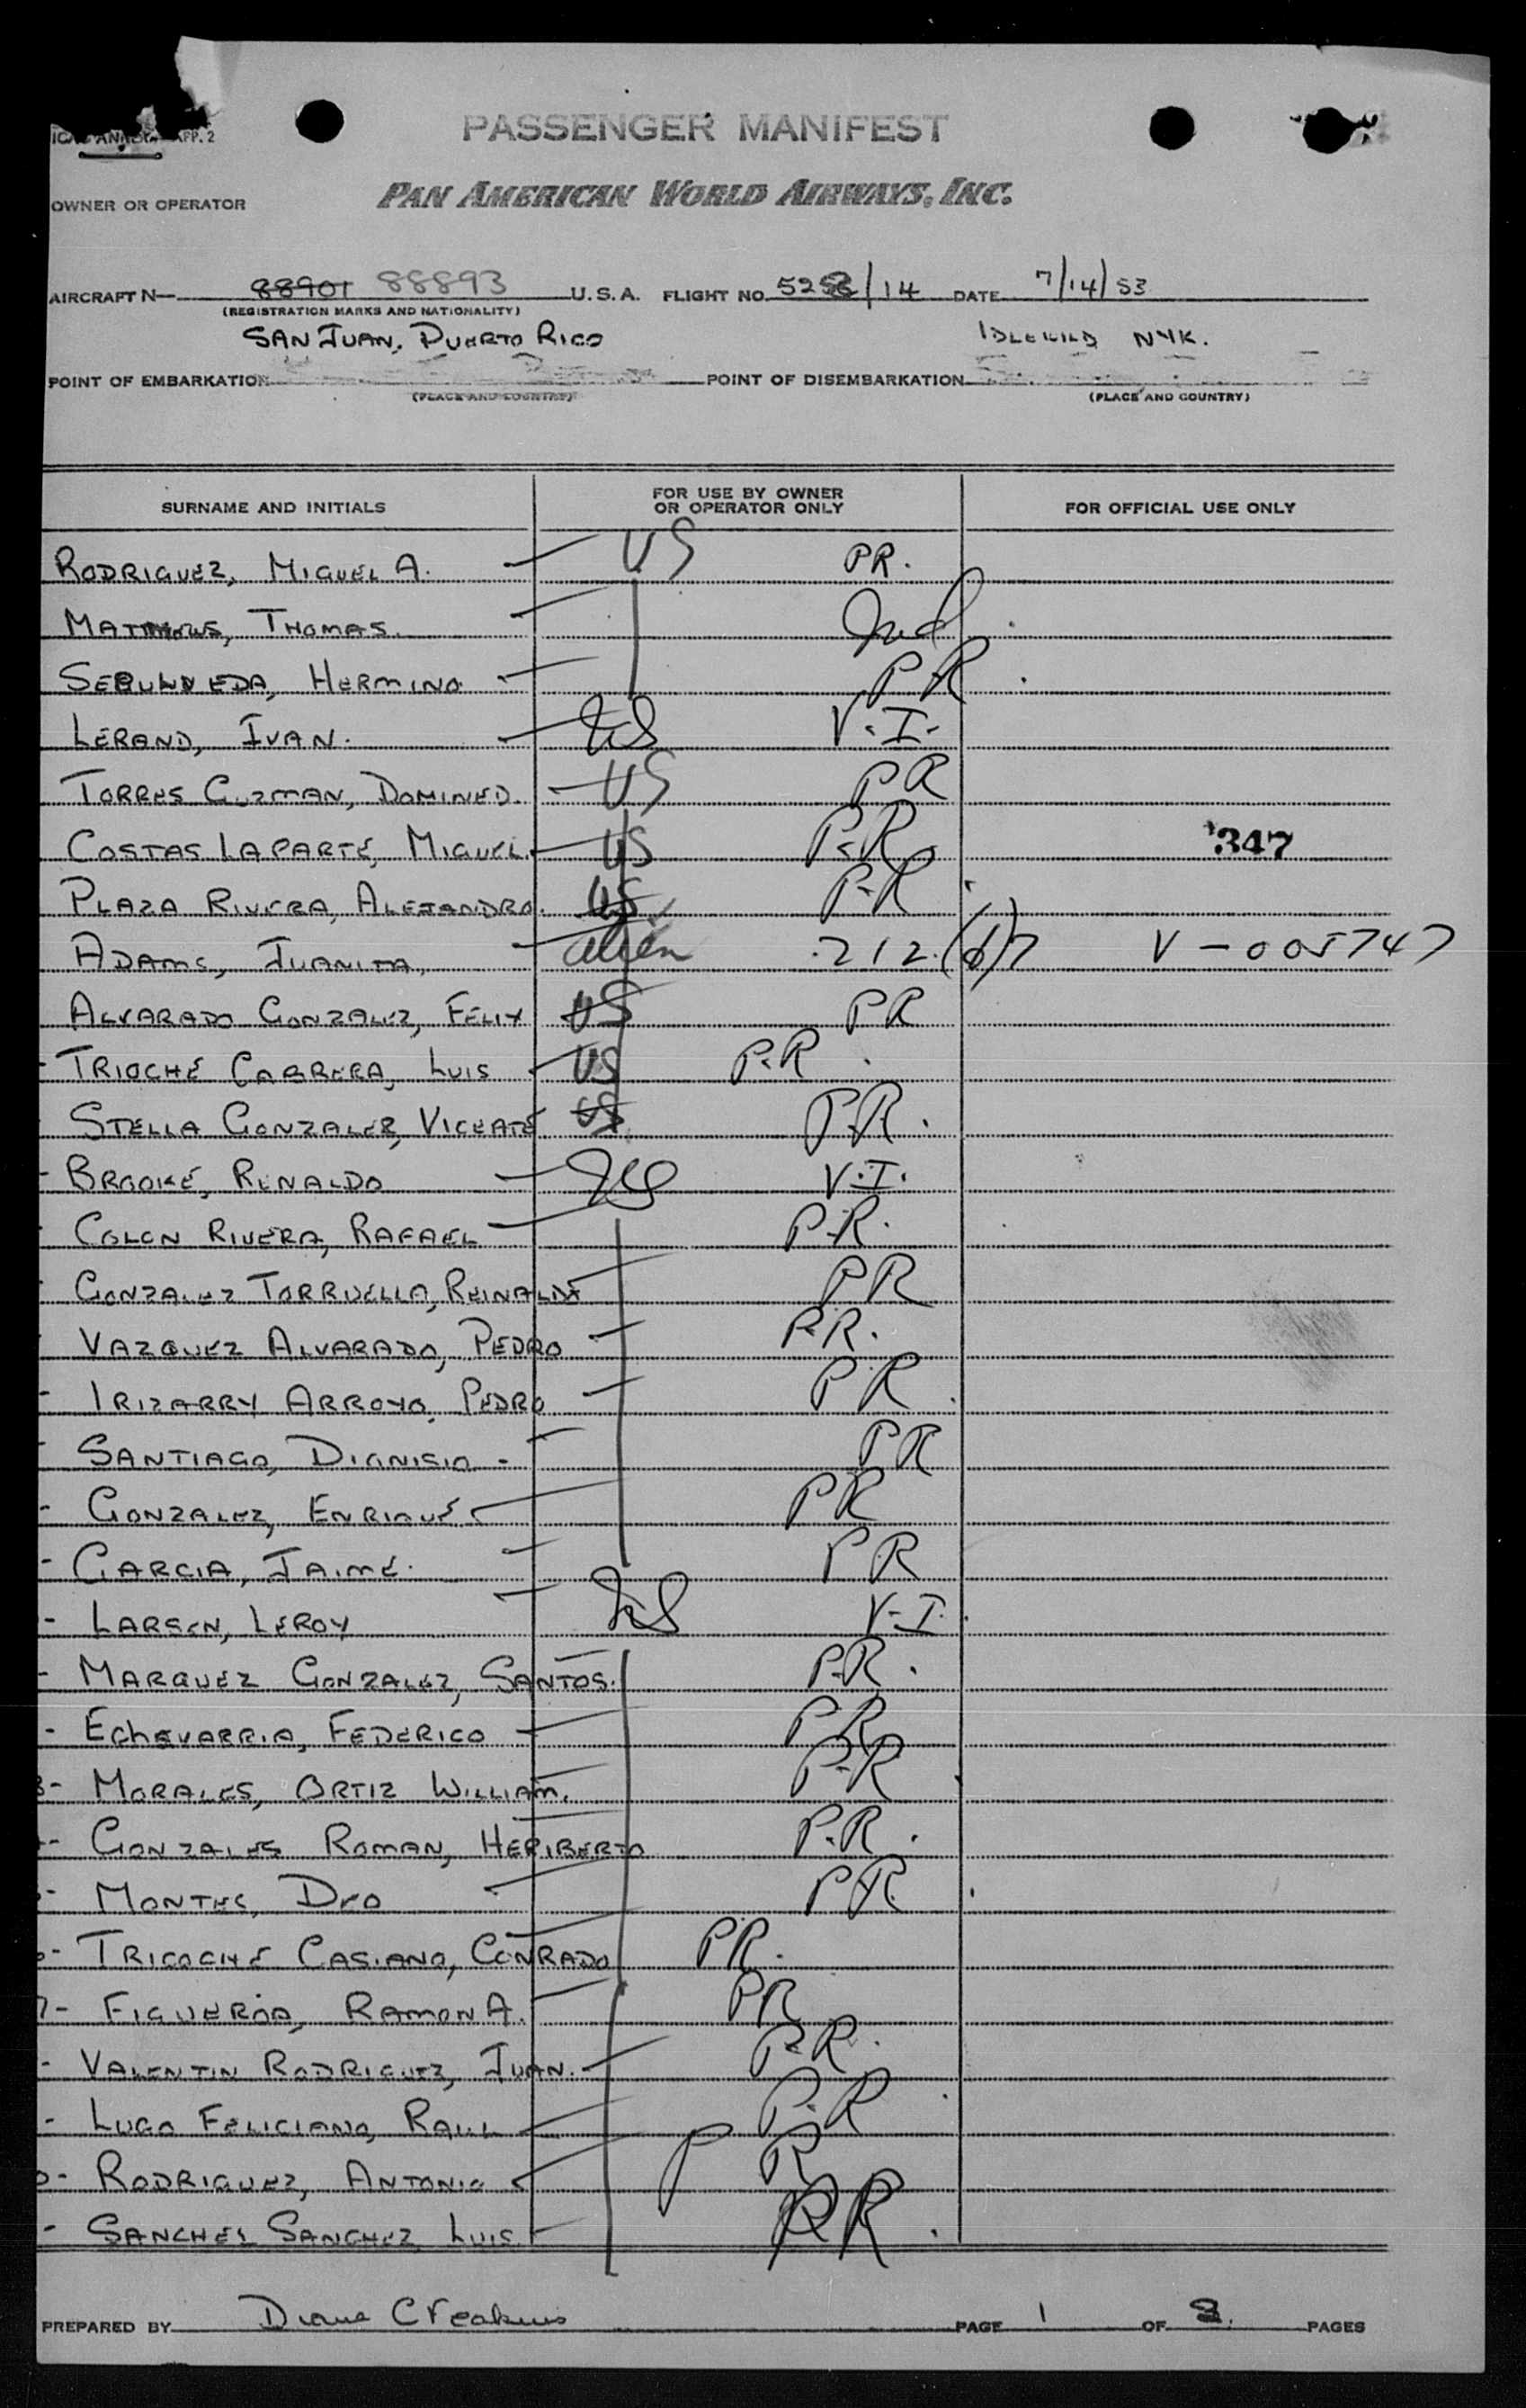 APP. 2
PASSENGER MANIFEST
OWNER OR OPERATOR PAN AMERICAN WORLD AIRWAYS, INC.
AIRCRAFT N— 88901 88893 U.S.A. FLIGHT NO. /14 DATE 7/14/53
(REGISTRATION MARKS AND NATIONALITY)
SAN JUAN, PUERTO RICO IDLEWILD NYK.
POINT OF EMBARKATION POINT OF DISEMBARKATION
(PLACE AND COUNTRY) (PLACE AND COUNTRY)
SURNAME AND INITIALS FOR USE BY OWNER OR OPERATOR ONLY FOR OFFICIAL USE ONLY
RODRIGUEZ, MIGUEL A. US PR.
THOMAS.
HERMINO PR
LERAND, IVAN. US V.I.
TORRES GUZMAN, DOMINED. US PR
COSTAS LAPARTE, MIGUEL. US P.R. 347
PLAZA RIVERA, ALEJANDRO. US P.R
ADAMS, JUANITA, alien 212.(d)7 V-005747
ALVARADO GONZALEZ, FELIX US PR
- TRIOCHE CABRERA, LUIS US P.R
- STELLA GONZALEZ, VICENTE US P.R.
- BROOKE, RENALDO US V.I.
- COLON RIVERA, RAFAEL P.R.
- GONZALEZ TORRUELLA, REINALDO PR
VAZQUEZ ALVARADO, PEDRO P.R.
- IRIZARRY ARROYO, PEDRO PR
- SANTIAGO, DIONISIO - PR
- GONZALEZ, ENRIQUE PR
- GARCIA, JAIME. PR
- LARSEN, LEROY US V-I.
- MARQUEZ GONZALEZ, SANTOS. P.R.
- ECHEVARRIA, FEDERICO P.R
- MORALES, ORTIZ WILLIAM. P.R
- GONZALES ROMAN, HERIBERTO P.R.
- MONTES, DEO PR.
- TRICOCHE CASIANO, CONRADO PR.
7- FIGUEROA, RAMON A. PR
- VALENTIN RODRIGUEZ, JUAN. P.R.
- LUGO FELICIANO, RAUL P.R
- RODRIGUEZ, ANTONIO P R
- SANCHES SANCHEZ, LUIS. PR.
PREPARED BY Diane PAGE 1 OF PAGES